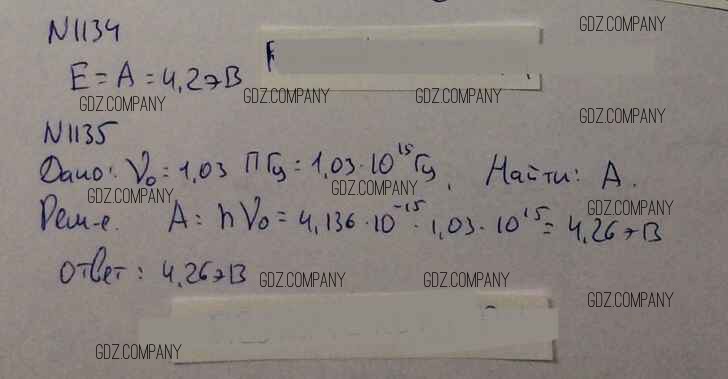 N1134
E = A = 4,2 эВ
N1135
Дано: V₀ = 1,03 ПГц = 1,03·10¹⁵ Гц, Найти: A.
Реш-е. A = hV₀ = 4,136·10⁻¹⁵·1,03·10¹⁵ = 4,26 эВ
Ответ: 4,26 эВ
GDZ.COMPANY
GDZ.COMPANY
GDZ.COMPANY
GDZ.COMPANY
GDZ.COMPANY
GDZ.COMPANY
GDZ.COMPANY
GDZ.COMPANY
GDZ.COMPANY
GDZ.COMPANY
GDZ.COMPANY
GDZ.COMPANY
GDZ.COMPANY